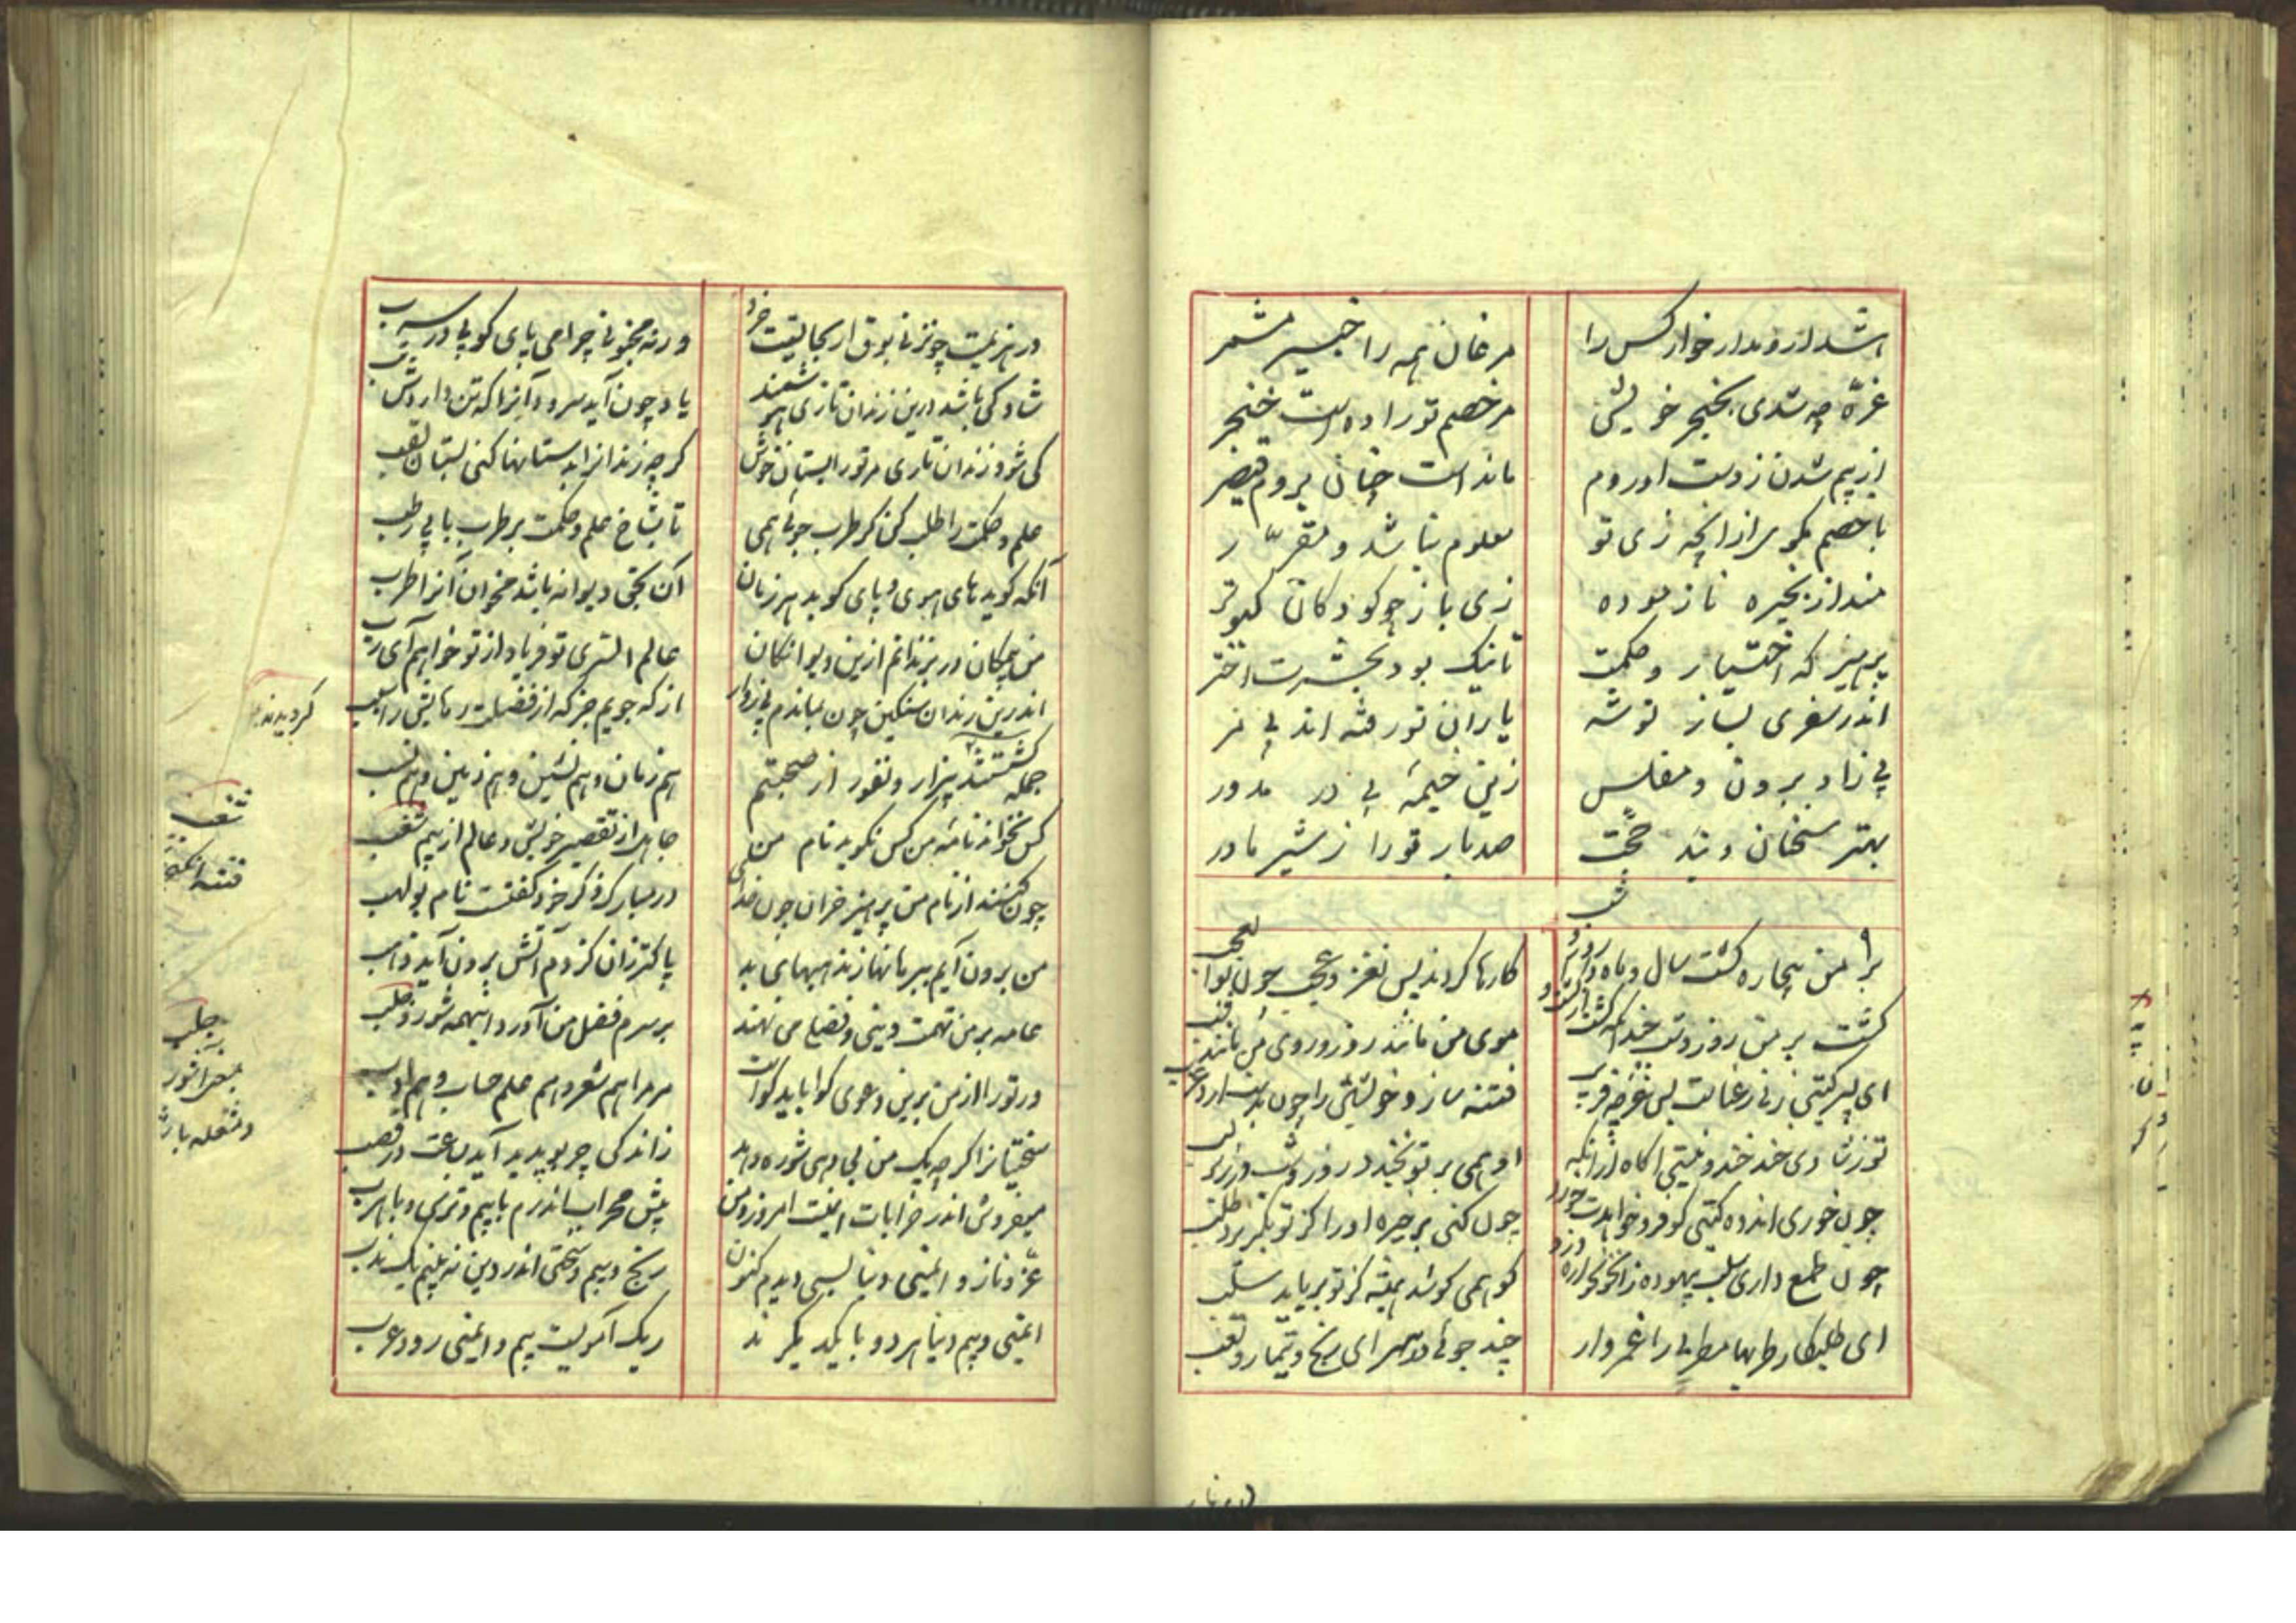 مرغان همه را خیره مشمر
غرّه چه شدی بخنجر خویش مر خصم تو را ده است خنجر
از بیم شدن ز دست او روم ماند است چنان بروم قیصر
با خصم مگوی از انچه زی تو معلوم نباشد و مقرّر
منداز بخیره نازموده زی باز چو کودکان کبوتر
پرهیز که اختیار و حکمت تا نیک بود بحشرت اختر
اندر سفری بساز توشه یاران تو رفته اند بی مر
بی زاد برون و مفلس زین خیمهٔ بی در مدور
بهتر سخنان و پند حجت صد بار تو را ز شیر مادر
بر من بیچاره گشت سال و ماه و روز و شب کارها کردند بس نغز و عجب چون بوالعجب
گشت بر من روز و شب چندانکه گشت از گشت او موی من مانند روز و روی من مانند شب
ای پسر گیتی زنی رعناست بس غرچه فریب فتنه سازد خویشتن را چون بدست ارد عزب
تو ز شادی خند خند و نیستی اگاه ازانکه او همی بر تو بخندد روز و شب در زیر لب
چون خوری اندوه گیتی کو فرو خواهدت خورد چون کنی بر خیره او را کز تو بگریزد طلب
چون طمع داری سلب بیهوده زان خونخواره دزد کو همی کوشد همیشه کز تو برباید سلب
ای طلبکار طربها مر طرب را غمروار چند جوئی در سرای رنج و تیمار و تعب
در هزیمت چون زنی بوق ار بجایستت خرد ور نه مجنونی چرا می پای کوبی در سرب
شاد کی باشد درین زندان تاری هوشمند یاد چون آید سرود آنرا که تن داردش تب
کی شود زندان تاری مر تو را بستان خوش گر چه زندانرا بدستانها کنی بستان لقب
علم و حکمت را طلب کن گر طرب جوئی همی تا بشاخ علم و حکمت پر طرب یابی رطب
آنکه گوید های هوی و پای کوبد هر زمان آن بحق دیوانه باشد مخوان آنرا طرب
من بیکان در بزندانم ازین دیوانگان عالم السّری تو فریاد از تو خواهم آی رب
اندرین زندان سنگین چون بماندم بی زوار از که جویم جز که از فضلت رهایش را سبب
جمله گشتستند بیزار و نفور از صحبتم هم زمان و هم نشین و هم زمین و هم نسب
کس نخواند نامهٔ من کس نگوید نام من جاهل از تقصیر خویش و عالم از بیم شغب
چون کنند از نام من پرهیز خران چون خدای در مبارک ذکر خود گفتست نام بولهب
من برون آیم ببرهانها ز مذهبهای بد پاکتر زان کز دم آتش برون آید ذهب
عامه بر من تهمت دینی و فضل من نهند بر سرم فضل من آورد اینهمه شور و جلب
ور تو را از من برین دعوی گوا باید گواست مر مرا هم شعر و هم علم حساب و هم ادب
سختیانرا گر چه یک من پی دهی شوره دهد ز اندکی چربو پدید آید بساعت در قصب
میفروش اندر خرابات ایمنست امروز و من پیش محراب اندرم با بیم و ترس و با هرب
عزّ و ناز و ایمنی دنیا بسی دیدم کنون رنج و بیم و سختی اندر دین نه بینم یک ندب
ایمنی و بیم دنیا هر دو با یکدیگرند ریگ آمویست بیم و ایمنی رود عرب
شغب
فتنه
جلب